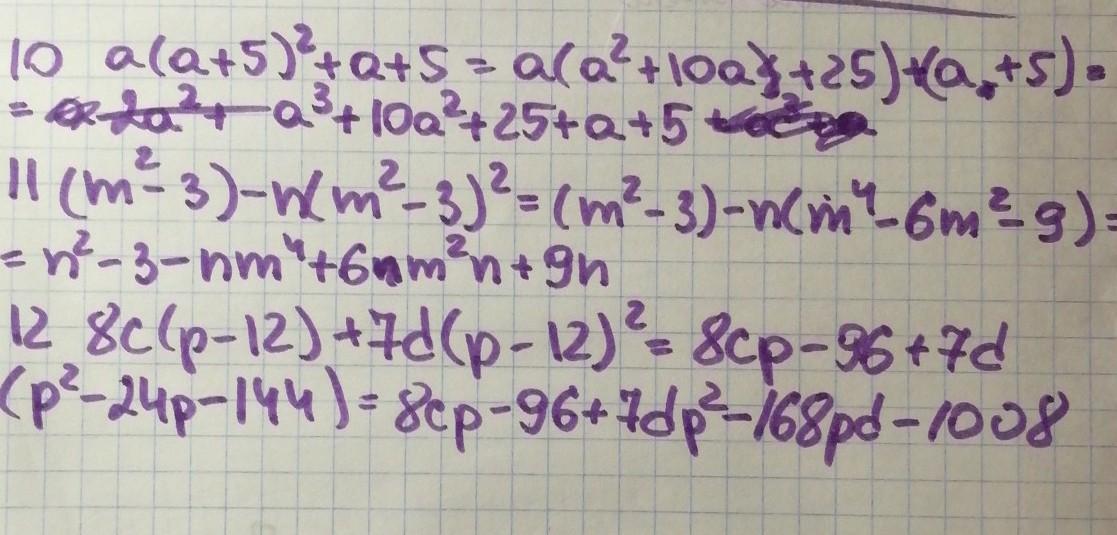 10 a(a+5)²+a+5 = a(a²+10a+25)+(a+5) =
= a³+10a²+25+a+5
11 (m²-3)-n(m²-3)² = (m²-3)-n(m⁴-6m²-9) =
= n²-3-nm⁴+6nm²n+9n
12 8c(p-12)+7d(p-12)² = 8cp-96+7d
(p²-24p-144) = 8cp-96+7dp²-168pd-1008